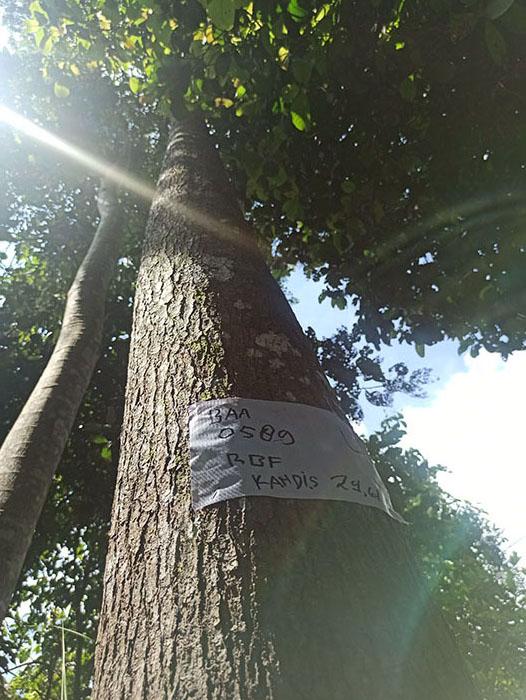 BAA
0589
BBF
KANDIS 29,6